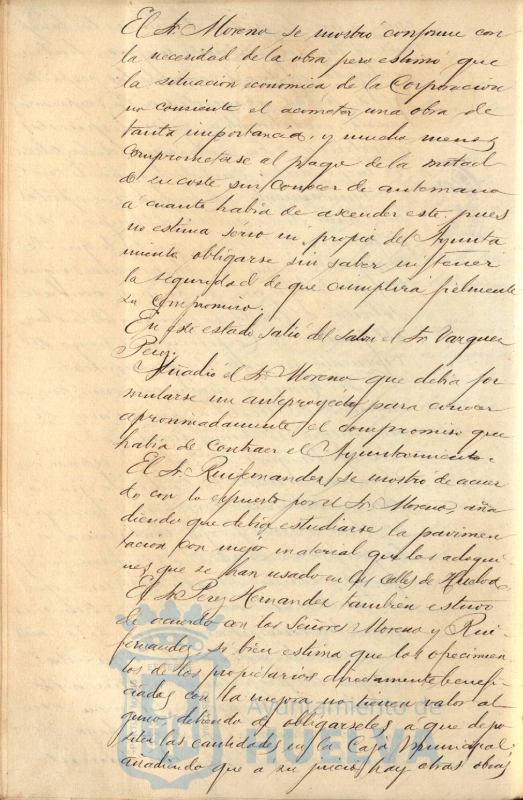 El Sr. Moreno se mostró conforme con
la necesidad de la obra pero estimó que
la situacion económica de la Corporacion
no consiente el acometer una obra de
tanta importancia, y mucho menos
comprometerse al pago de la mitad
de su coste sin conocer de antemano
á cuanto habia de ascender este, pues
no estima serio ni propio del Ayunta
miento obligarse sin saber ni tener
la seguridad de que cumplirá fielmente
su compromiso.
En este estado salió del salon el Sr. Vazquez
Perez.
Añadió el Sr. Moreno que debia for
mularse un anteproyecto para conocer
aproximadamente el compromiso que
habia de contraer el Ayuntamiento.
El Sr. Ruifernandez se mostró de acuer
do con lo expuesto por el Sr. Moreno, aña
diendo que debia estudiarse la pavimen
tación con mejor material que los adoqui
nes que se han usado en las calles de Huelva.
El Sr. Perez Hernandez tambien estuvo
de acuerdo con los Señores Moreno y Rui
fernandez, si bien estima que los ofrecimien
tos de los propietarios directamente benefi
ciados con la mejora no tienen valor al
guno, debiendo de obligarseles a que depo
siten las cantidades en la Caja Municipal;
añadiendo que a su juicio hay otras obras
Ayuntamiento de
HUELVA